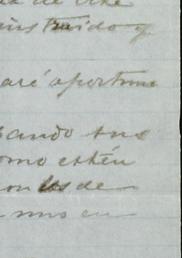 de
instruido y
aré oportuno
sando sus
omo estén
on los de
unos en